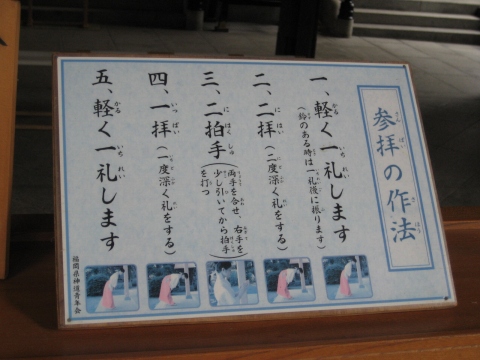 参拝の作法
一、軽く一礼します
（鈴のある時は一礼後に振ります）
二、二拝（二度深く礼をする）
三、二拍手（両手を合せ、右手を
少し引いてから拍手
を打つ）
四、一拝（一度深く礼をする）
五、軽く一礼します
福岡県神道青年会